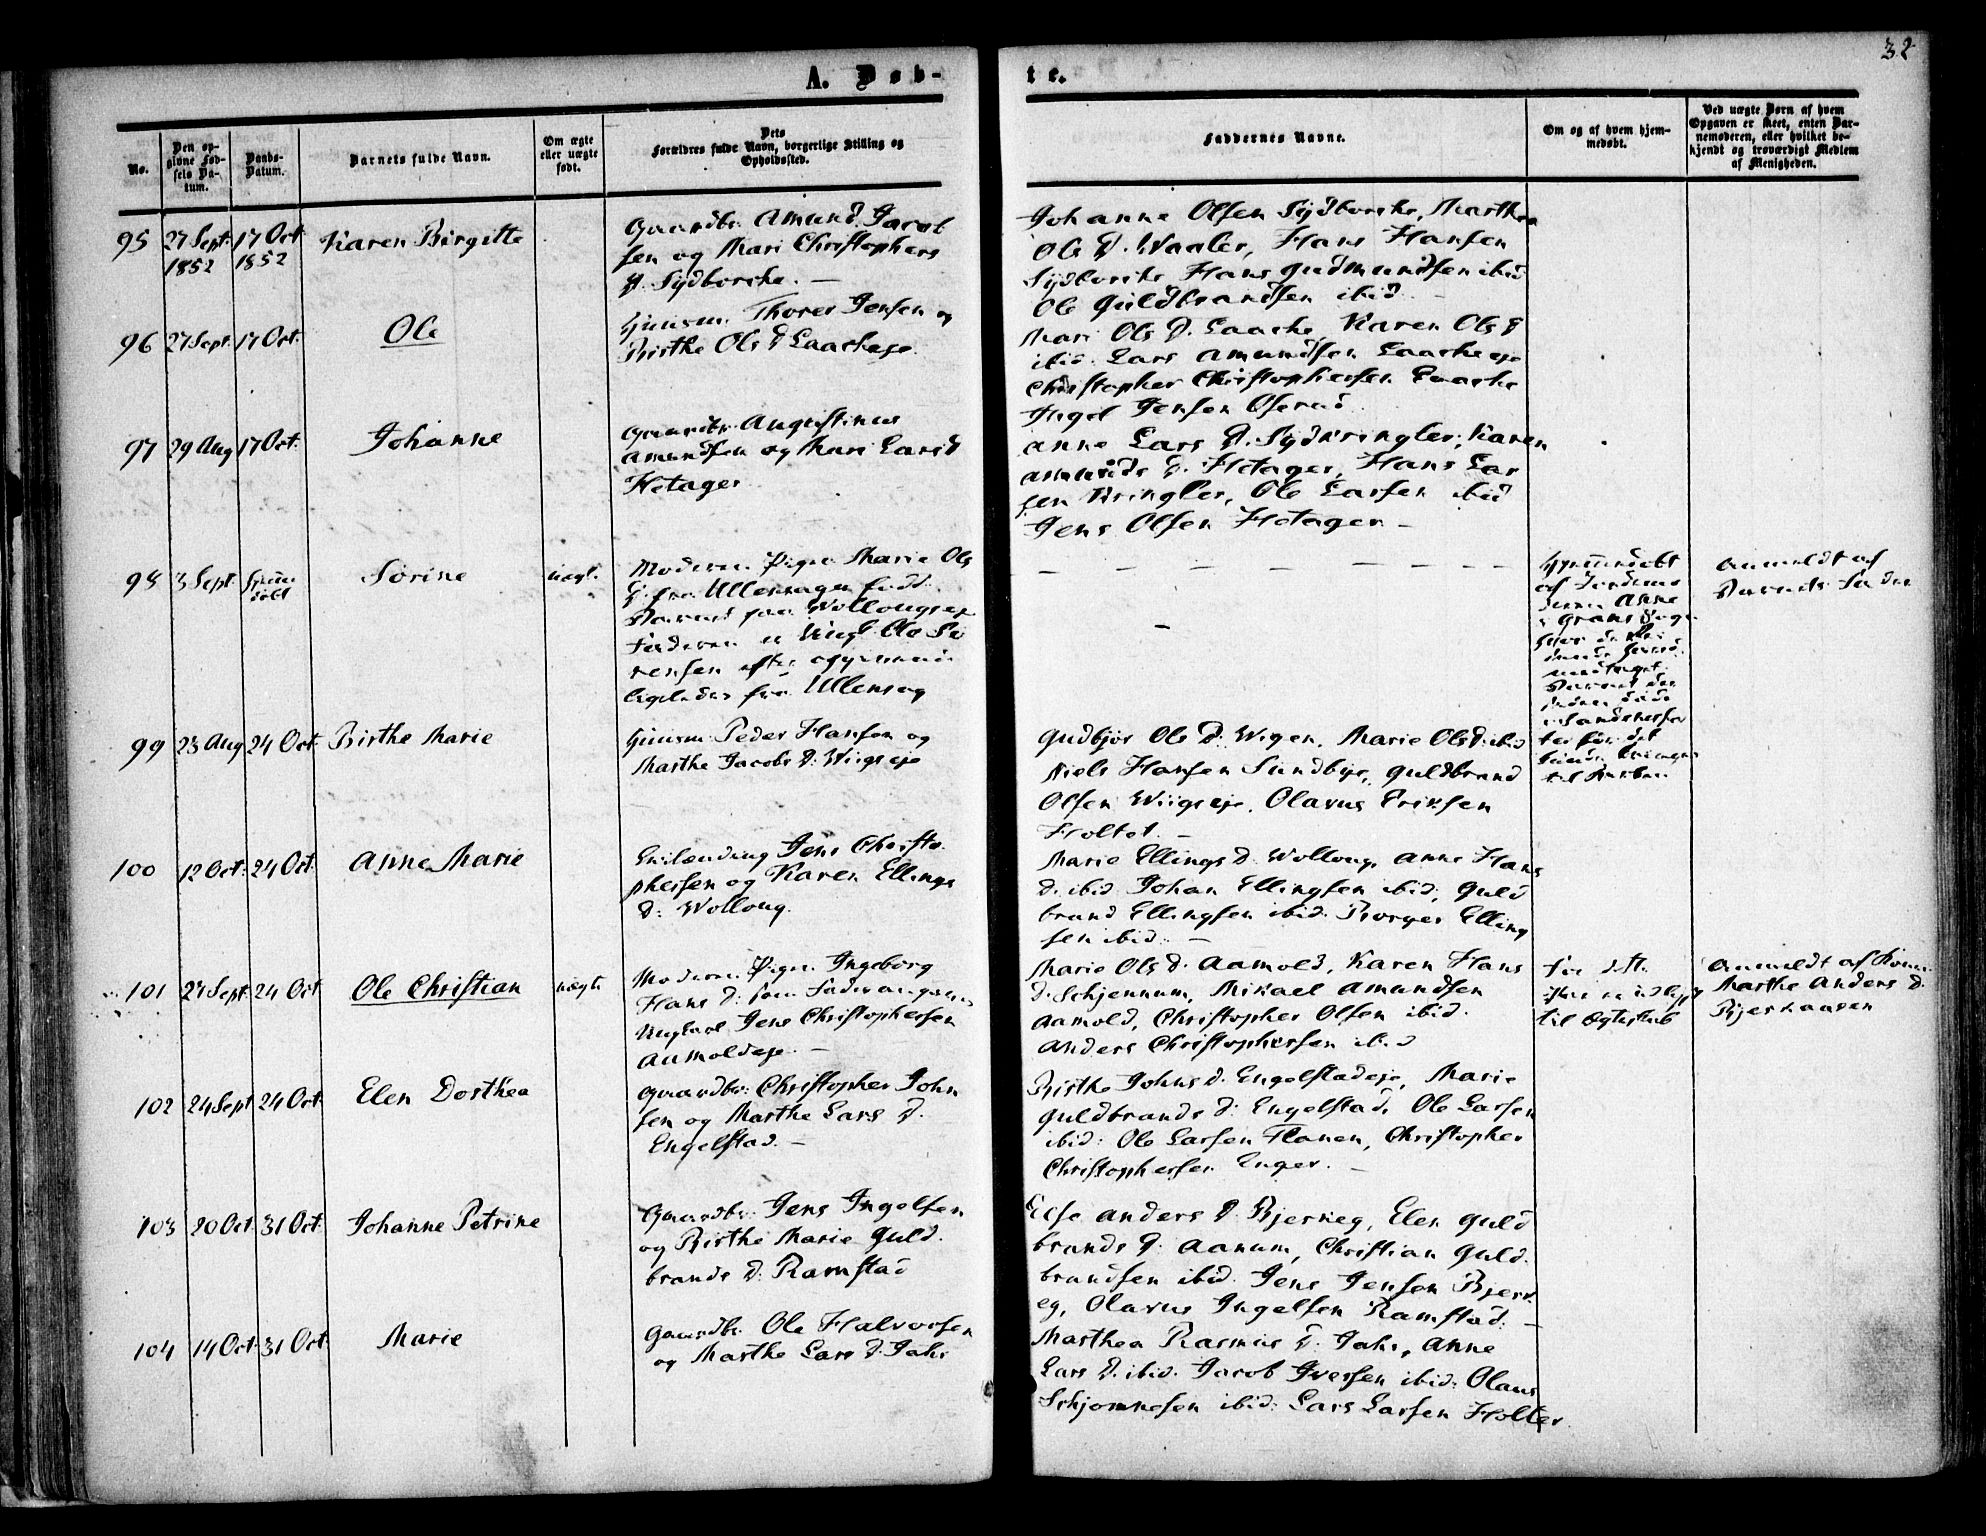 32
A. Døb-
te.
No.
Den op-
givne Fød-
sels Da-
tum.
Daabs-
Datum.
Barnets fulde Navn.
Om ægte
eller uægte
født.
Dets
Forældres fulde Navn, borgerlige Stilling og
Opholdssted.
Faddernes Navne.
Om og af hvem hjem-
medøbt.
Ved uægte Børn af hvem
Opgaven er skeet, enten Bar-
nemoderen, eller hvilket be-
kjendt og troværdigt Medlem
af Menigheden.
95
27 Sept.
1852
17 Oct
1852
Karen Birgitte
Gaardbr. Amund Jacob
sen og Mari Christophers
D. Sydborche. —
Johanne Olsen Sydborche, Marthea
Ols D. Waaler, Hans Hansen
Sydborche Hans Gudmundsen ibid
Ole Guldbrandsen ibid. —
96
27 Sept.
17 Oct.
Ole
Huusm. Thorer Jensen og
Birthe Ols D Laacheje
Mari Ols D. Laache, Karen Ols D
ibid. Lars Amundsen Laacheeje
Christopher Christophersen Laache
Ingel Jensen Oserud
97
29 Aug
17 Oct.
Johanne
Gaardbr. Augustinus
Amundsen og Mari Lars D
Hotager
Anne Lars D. Sydkringler, Karen
Amunds D. Hotager, Hans Lar
sen Kringler, Ole Larsen ibid
Jens Olsen Hotager —
98
3 Sept.
Sorine
uægt.
Moderen Pige Marie Ols
D. fra Ullensager født
Wollougseje
Faderen er Ungk. Ole Sø
rensen
ligeledes fra Ullensag
Hjemmedøbt
af Jordemo
deren Anne
Anmeldt af
Barnets Fader
99
23 Aug
24 Oct.
Birthe Marie
Huusm. Peder Hansen og
Marthe Jacobs D. Wiigseje
Gudbjør Ols D. Wigen, Marie Ols D. ibid
Niels Hansen Sundbye, Guldbrand
Olsen Wiigseje, Olavus Eriksen
Holtet. —
100
12 Oct.
24 Oct.
Anne Marie
Jens Christo
phersen og Karen Ellings
D. Wolloug.
Marie Ellings D. Wolloug, Anne Hans
D. ibid Johan Ellingsen ibid, Guld
brand Ellingsen ibid. Borger Elling
sen ibid. —
101
27 Sept.
24 Oct
Ole Christian
uægte
Moderen Pige Ingeborg
Hans D. som Fader angives
Ungkarl Jens Christophersen
Aamoldeje. —
Marie Ols D. Aamold, Karen Hans
D. Schjennum, Mikael Amundsen
Aamold, Christopher Olsen ibid.
Anders Christophersen ibid
til Ægteskab
Anmeldt af Kone
Marthe Anders D.
Bjerkaasen
102
24 Sept
24 Oct
Elen Dorthea
Gaardbr. Christopher John
sen og Marthe Lars D.
Engelstad. —
Birthe Johns D. Engelstadeje, Marie
Guldbrands D. Engelstad, Ole Larsen
ibid: Ole Larsen Flanen, Christopher
Christophersen Enger. —
103
20 Oct
31 Oct.
Johanne Petrine
Gaardbr. Jens Ingelsen
og Birthe Marie Guld
brands D. Ramstad
Else Anders D. Bjerkeg, Elen Guld
brands D. Aanum, Christian Guld
brandsen ibid. Jens Jensen Bjerk
eg, Olavus Ingelsen Ramstad. —
104
14 Oct.
31 Oct
Marie
Gaardbr. Ole Halvorsen
og Marthe Lars D. Jahr
Marthea Rasmus D. Jahr, Anne
Lars D. ibid. Jacob Iversen ibid. Olaus
Schjønnesen ibid: Lars Larsen Holter